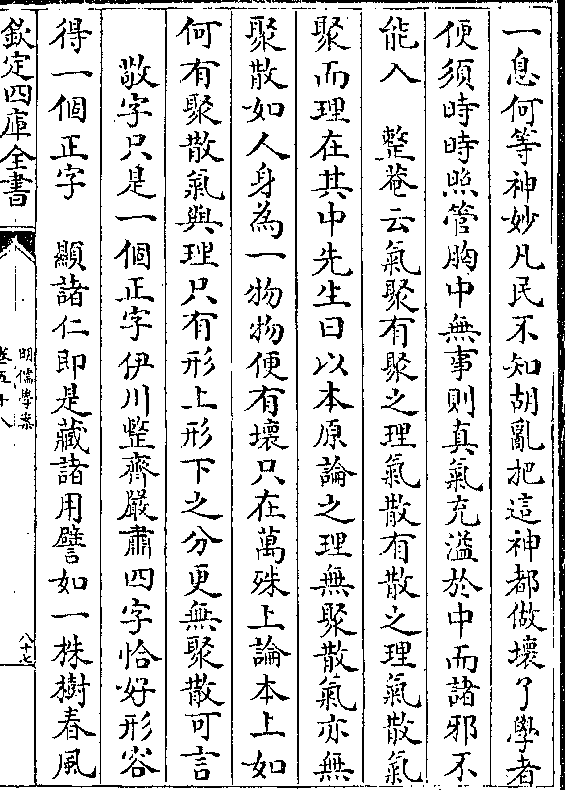 一息何等神妙凡民不知胡亂把這神都做壞了學者
便須時時照管胸中無事則真氣充溢於中而諸邪不
能入　整菴云氣聚有聚之理氣散有散之理氣散氣
聚而理在其中先生曰以本原論之理無聚散氣亦無
聚散如人身為一物物便有壞只在萬殊上論本上如
何有聚散氣與理只有形上形下之分更無聚散可言
　敬字只是一個正字伊川整齊嚴肅四字恰好形容
得一個正字　顯諸仁即是藏諸用譬如一株樹春風
欽定四庫全書
明儒學案
卷五十八
八十七